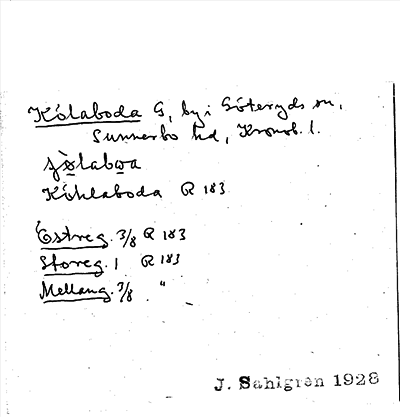 Kólaboda G, by i Göteryds sn,
Sunnerbo hd, Kronob. l.
Kóhlaboda R 183
Östreg. 3/8 R 183
Storeg. 1 R 183
Mellang. 3/8 "
J. Sahlgren 1928